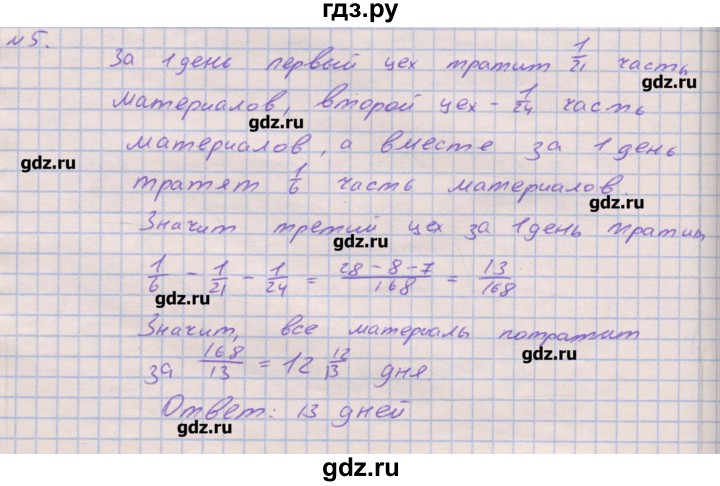 гдз.ру
№5.
За 1 день первый цех тратит 1/21 часть
gdz.ru
материалов, второй цех - 1/24 часть
gdz.ru
материалов, а вместе за 1 день
gdz.ru
тратят 1/6 часть материалов.
gdz.ru
Значит третий цех за 1 день тратит
gdz.ru
1/6 - 1/21 - 1/24 = (28 - 8 - 7)/168 = 13/168
gdz.ru
gdz.ru
Значит, все материалы потратит
gdz.ru
за 168/13 = 12 12/13 дня
gdz.ru
Ответ: 13 дней
gdz.ru
gdz.ru